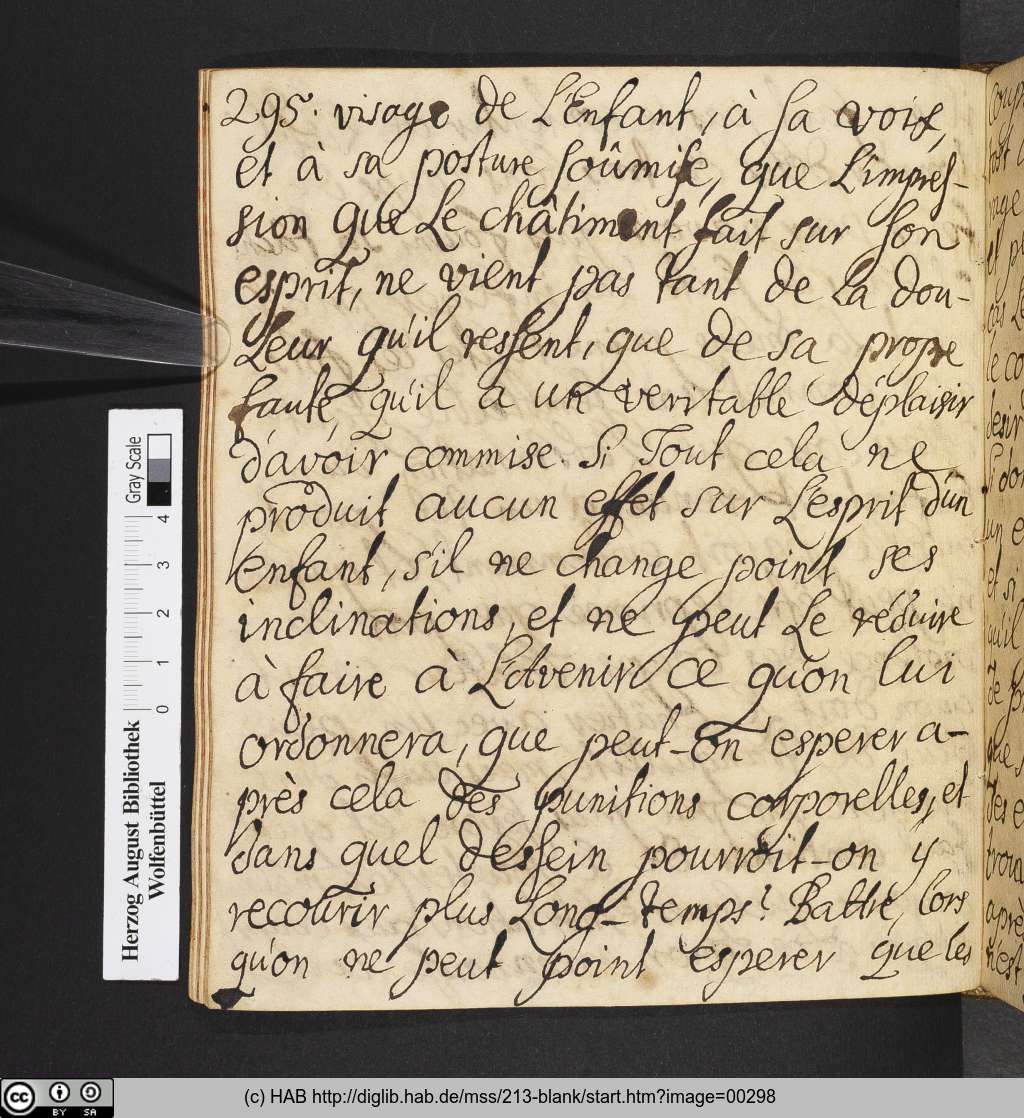 295. visage de L'Enfant, à sa voix,
et à sa posture soûmise, que L'impres-
sion que Le châtiment fait sur son
esprit, ne vient pas tant de La dou-
Leur qu'il ressent, que de sa propre
faute, qu'il a un veritable déplaisir
d'avoir commise. Si Tout cela ne
produit aucun effet sur L'esprit d'un
Enfant, s'il ne change point ses
inclinations, et ne peut Le réduire
à faire à L'Avenir ce qu'on lui
ordonnera, que peut-on esperer a-
près cela des punitions corporelles, et
dans quel dessein pourroit-on y
recourir plus Long-temps? Battre, lors
qu'on ne peut point esperer que les
Herzog August Bibliothek
Wolfenbüttel
Gray Scale
0 1 2 3 4
BY SA
(c) HAB http://diglib.hab.de/mss/213-blank/start.htm?image=00298